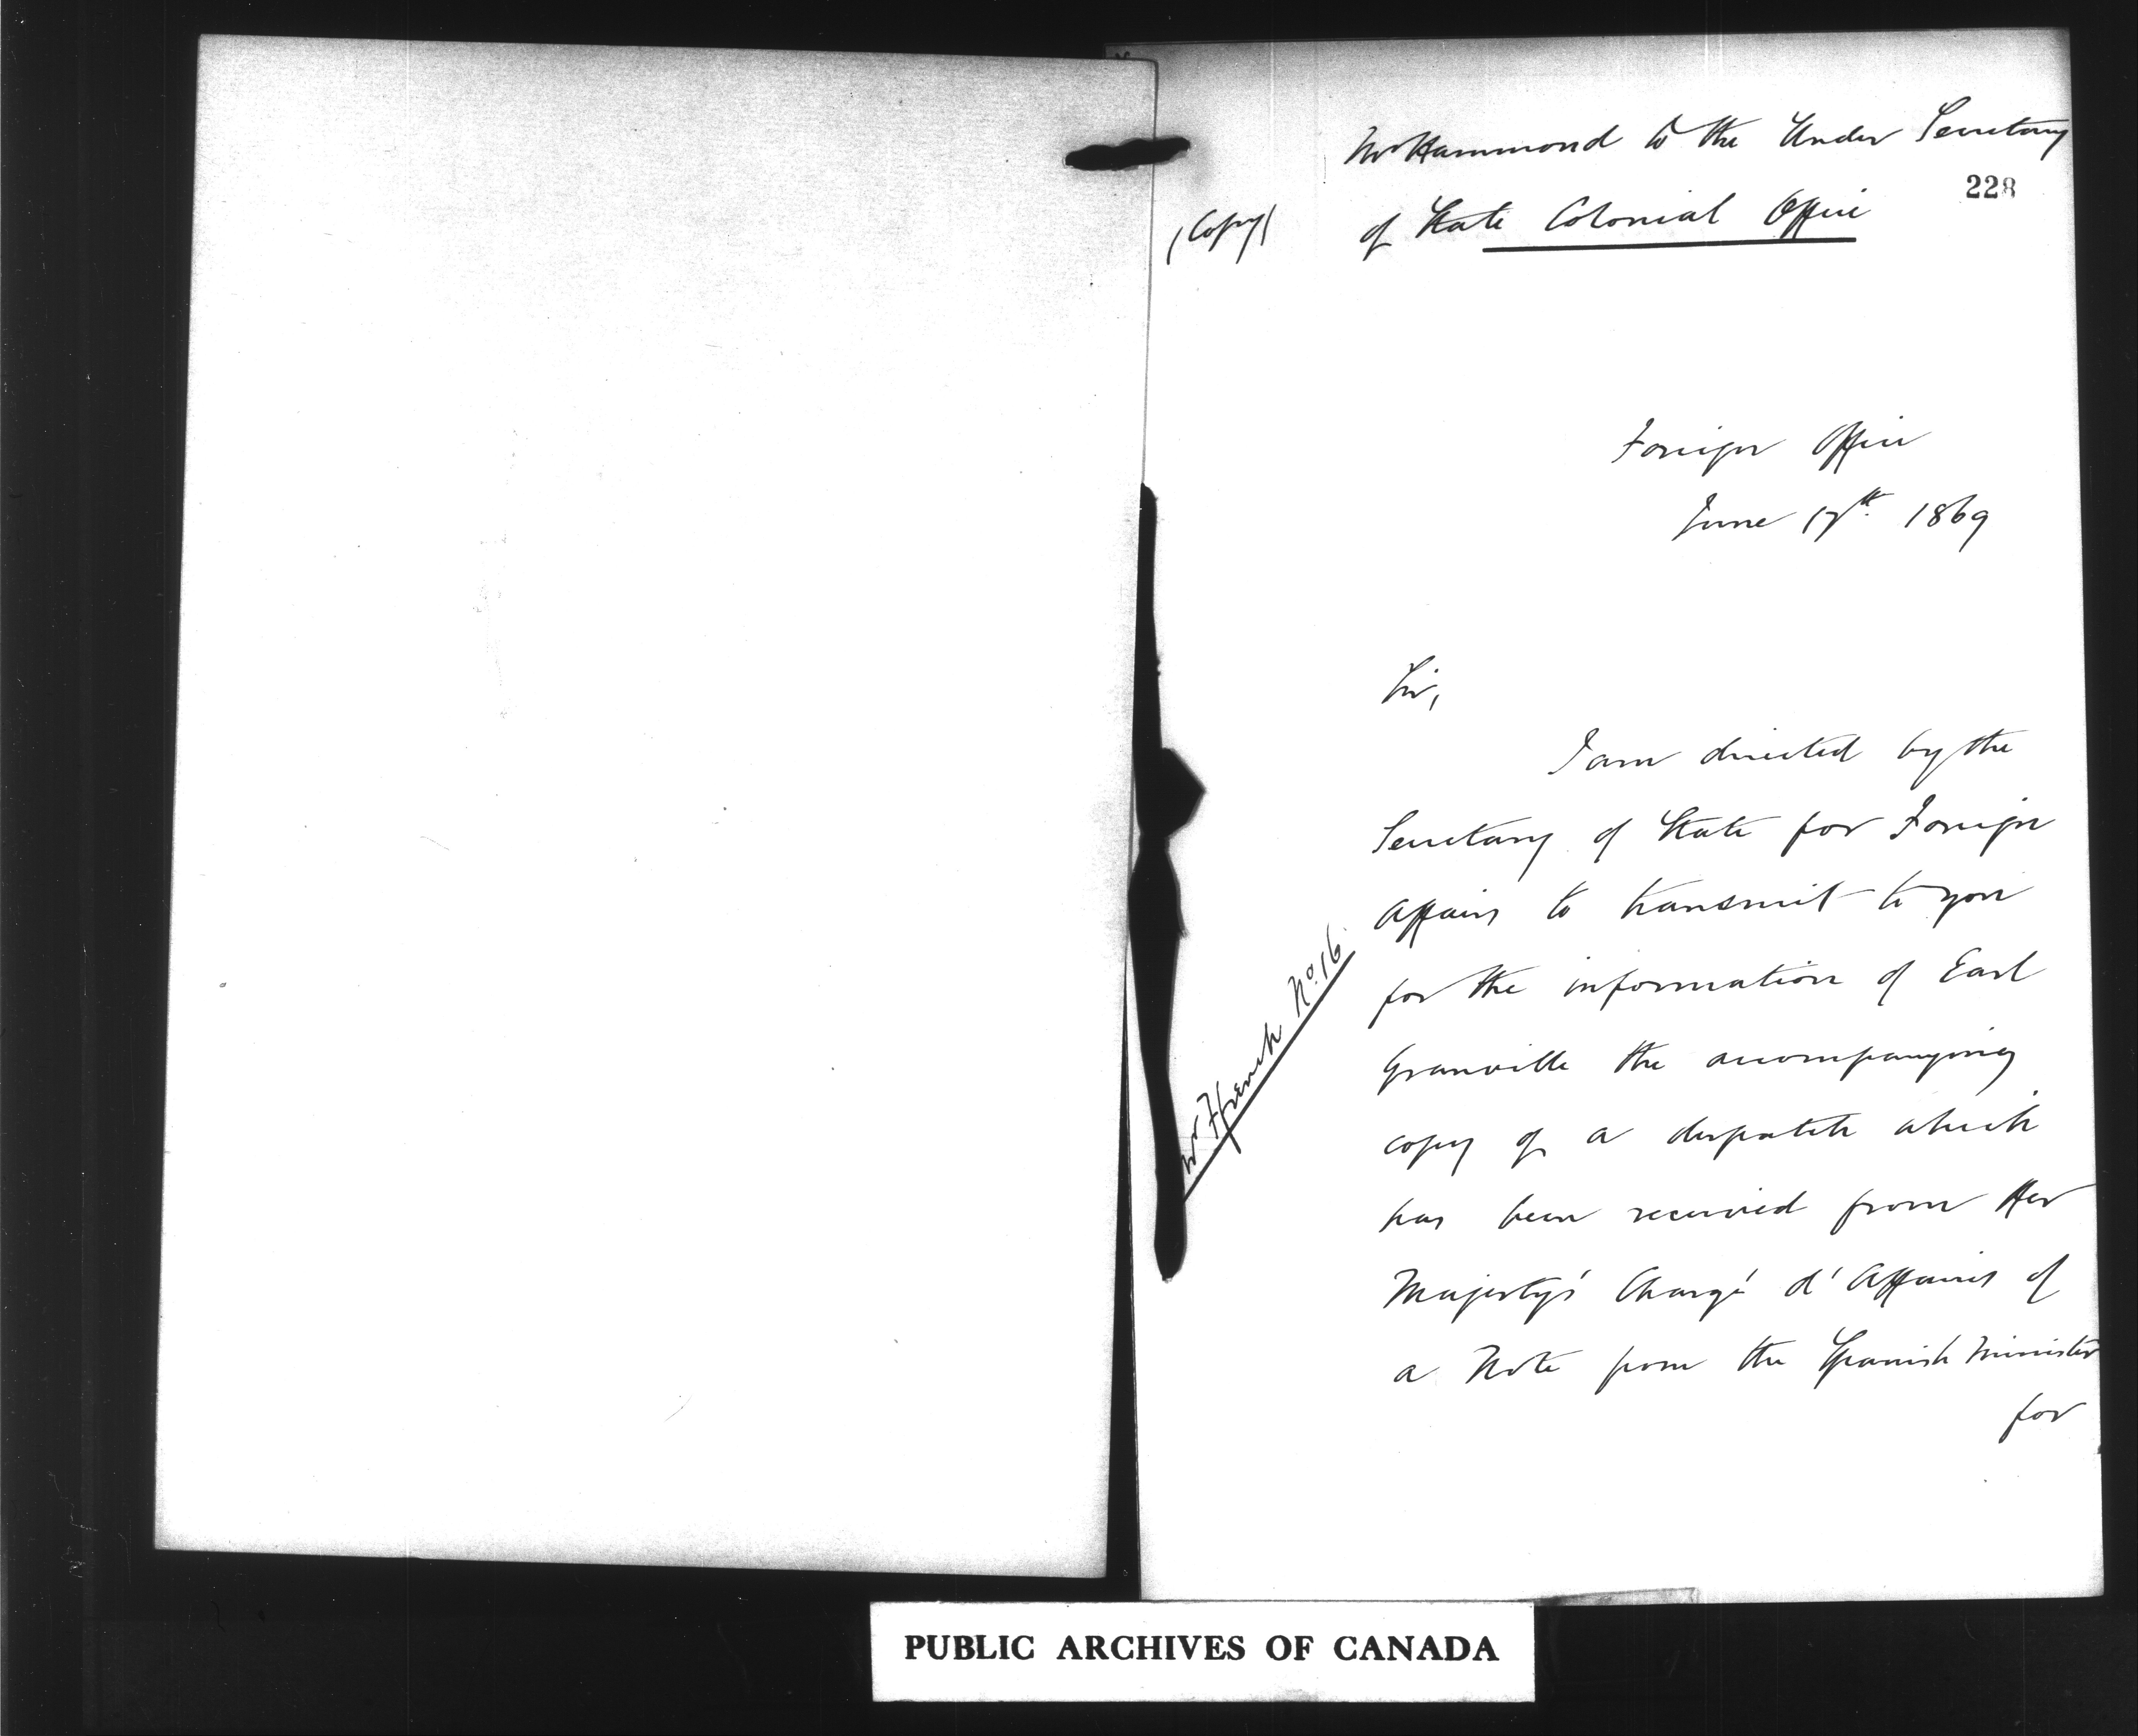 Mr Hammond to the Under Secretary
228
(Copy)
of State Colonial Office
Foreign Office
June 17th. 1869
Sir,
I am directed by the
Secretary of State for Foreign
Affairs to transmit to you
for the information of Earl
Granville the accompanying
copy of a despatch which
has been received from Her
Majesty's Chargé d'Affaires of
a Note from the Spanish Minister
for
Mr Ffrench No. 16
PUBLIC ARCHIVES OF CANADA